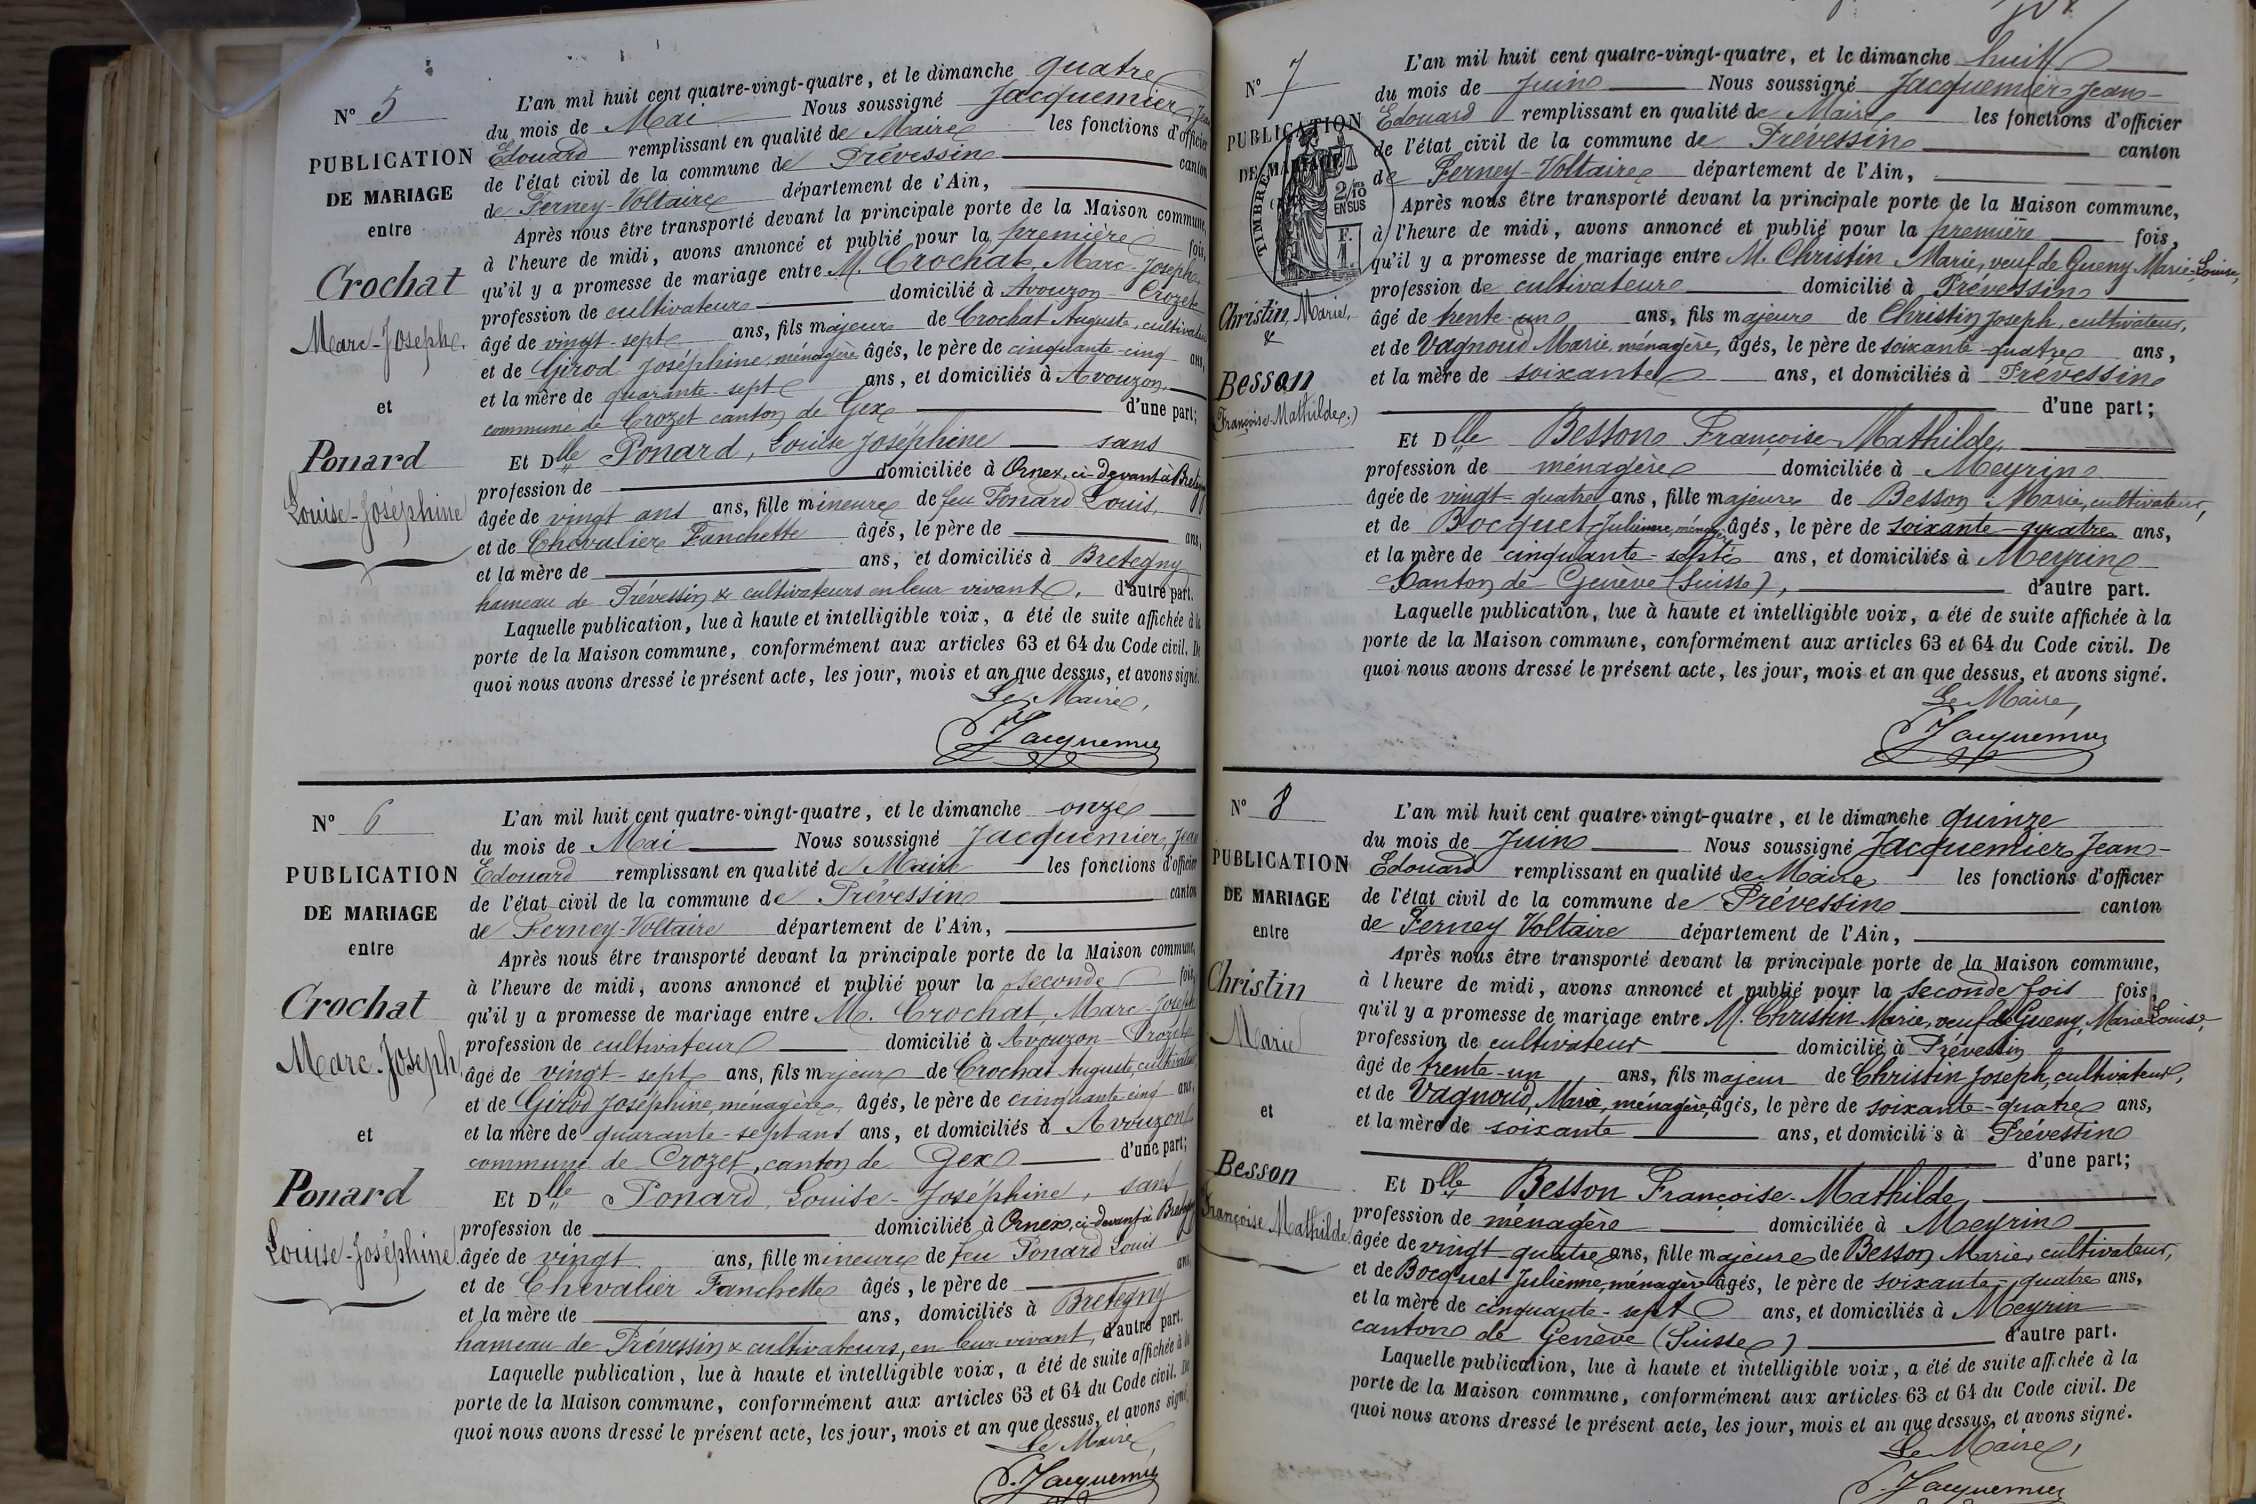 N° 5
PUBLICATION
DE MARIAGE
entre
Crochat
Marc-Joseph.
et
Ponard
Louise-Joséphine
L'an mil huit cent quatre-vingt-quatre, et le dimanche quatre
du mois de Mai Nous soussigné Jacquemier, Jean
Edouard remplissant en qualité de Maire les fonctions d'officier
de l'état civil de la commune de Prévessin canton
de Ferney-Voltaire département de l'Ain,
Après nous être transporté devant la principale porte de la Maison commune,
à l'heure de midi, avons annoncé et publié pour la première fois,
qu'il y a promesse de mariage entre M. Crochat, Marc-Joseph,
profession de cultivateur domicilié à Avouzon-Crozet
âgé de vingt-sept ans, fils majeur de Crochat Auguste, cultivateur
et de Girod Joséphine, ménagère âgés, le père de cinquante-cinq ans,
et la mère de quarante-sept ans, et domiciliés à Avouzon,
commune de Crozet canton de Gex d'une part;
Et Dlle Ponard, Louise Joséphine sans
profession de domiciliée à Ornex, ci-devant à Bretegny
âgée de vingt ans ans, fille mineure de feu Ponard Louis,
et de Chevalier Fanchette âgés, le père de ans,
et la mère de ans, et domiciliés à Bretegny
hameau de Prévessin & cultivateurs en leur vivant, d'autre part.
Laquelle publication, lue à haute et intelligible voix, a été de suite affichée à la
porte de la Maison commune, conformément aux articles 63 et 64 du Code civil. De
quoi nous avons dressé le présent acte, les jour, mois et an que dessus, et avons signé.
Le Maire,
Jacquemier
N° 6
PUBLICATION
DE MARIAGE
entre
Crochat
Marc-Joseph
et
Ponard
Louise-Joséphine
L'an mil huit cent quatre-vingt-quatre, et le dimanche onze
du mois de Mai Nous soussigné Jacquemier, Jean
Edouard remplissant en qualité de Maire les fonctions d'officier
de l'état civil de la commune de Prévessin canton
de Ferney-Voltaire département de l'Ain,
Après nous être transporté devant la principale porte de la Maison commune,
à l'heure de midi, avons annoncé et publié pour la seconde fois,
qu'il y a promesse de mariage entre M. Crochat, Marc-Joseph
profession de cultivateur domicilié à Avouzon-Crozet
âgé de vingt-sept ans, fils majeur de Crochat Auguste, cultivateur
et de Girod Joséphine, ménagère, âgés, le père de cinquante-cinq ans,
et la mère de quarante-sept ans ans, et domiciliés à Avouzon
commune de Crozet, canton de Gex d'une part;
Et Dlle Ponard, Louise-Joséphine, sans
profession de domiciliée à Ornex, ci-devant à Bretegny
âgée de vingt ans, fille mineure de feu Ponard Louis
et de Chevalier Fanchette âgés, le père de ans,
et la mère de ans, domiciliés à Bretegny
hameau de Prévessin & cultivateurs, en leur vivant, d'autre part.
Laquelle publication, lue à haute et intelligible voix, a été de suite affichée à la
porte de la Maison commune, conformément aux articles 63 et 64 du Code civil. De
quoi nous avons dressé le présent acte, les jour, mois et an que dessus, et avons signé.
Le Maire,
Jacquemier
N° 7
PUBLICATION
DE MARIAGE
TIMBRE
2/10
EN SUS
F.
Christin, Marie,
&
Besson
Françoise-Mathilde,)
L'an mil huit cent quatre-vingt-quatre, et le dimanche huit
du mois de Juin Nous soussigné Jacquemier Jean-
Edouard remplissant en qualité de Maire les fonctions d'officier
de l'état civil de la commune de Prévessin canton
de Ferney-Voltaire département de l'Ain,
Après nous être transporté devant la principale porte de la Maison commune,
à l'heure de midi, avons annoncé et publié pour la première fois,
qu'il y a promesse de mariage entre M. Christin Marie, veuf de Gueny Marie-Louise,
profession de cultivateur domicilié à Prévessin
âgé de trente-un ans, fils majeur de Christin Joseph, cultivateur,
et de Vagnoud Marie, ménagère, âgés, le père de soixante-quatre ans,
et la mère de soixante ans, et domiciliés à Prévessin
d'une part;
Et Dlle Besson Françoise-Mathilde,
profession de ménagère domiciliée à Meyrin
âgée de vingt-quatre ans, fille majeure de Besson Marie, cultivateur,
et de Bocquet Julienne, ménagère âgés, le père de soixante-quatre ans,
et la mère de cinquante-sept ans, et domiciliés à Meyrin
Canton de Genève (Suisse), d'autre part.
Laquelle publication, lue à haute et intelligible voix, a été de suite affichée à la
porte de la Maison commune, conformément aux articles 63 et 64 du Code civil. De
quoi nous avons dressé le présent acte, les jour, mois et an que dessus, et avons signé.
Le Maire,
Jacquemier
N° 8
PUBLICATION
DE MARIAGE
entre
Christin
Marie
et
Besson
Françoise Mathilde
L'an mil huit cent quatre-vingt-quatre, et le dimanche quinze
du mois de Juin Nous soussigné Jacquemier Jean-
Edouard remplissant en qualité de Maire les fonctions d'officier
de l'état civil de la commune de Prévessin canton
de Ferney Voltaire département de l'Ain,
Après nous être transporté devant la principale porte de la Maison commune,
à l'heure de midi, avons annoncé et publié pour la seconde fois fois,
qu'il y a promesse de mariage entre M. Christin Marie, veuf de Gueny, Marie Louise,
profession de cultivateur domicilié à Prévessin
âgé de trente-un ans, fils majeur de Christin Joseph, cultivateur,
et de Vagnoud, Marie, ménagère, âgés, le père de soixante-quatre ans,
et la mère de soixante ans, et domiciliés à Prévessin
d'une part;
Et Dlle Besson Françoise-Mathilde,
profession de ménagère domiciliée à Meyrin
âgée de vingt-quatre ans, fille majeure de Besson Marie, cultivateur,
et de Bocquet Julienne, ménagère âgés, le père de soixante-quatre ans,
et la mère de cinquante-sept ans, et domiciliés à Meyrin
canton de Genève (Suisse) d'autre part.
Laquelle publication, lue à haute et intelligible voix, a été de suite affichée à la
porte de la Maison commune, conformément aux articles 63 et 64 du Code civil. De
quoi nous avons dressé le présent acte, les jour, mois et an que dessus, et avons signé.
Le Maire,
Jacquemier